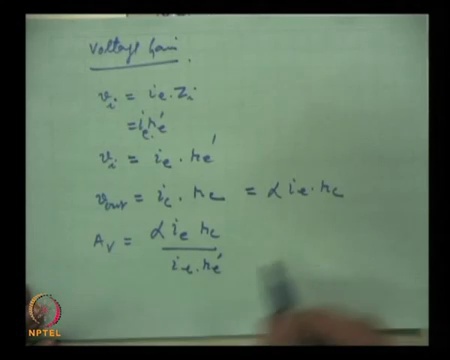 Voltage Gain.
v_i = i_e . Z_i
= i_e r_e'
v_i = i_e . r_e'
v_out = i_c . r_c = α i_e . r_c
A_v = α i_e r_c / i_e . r_e'
NPTEL